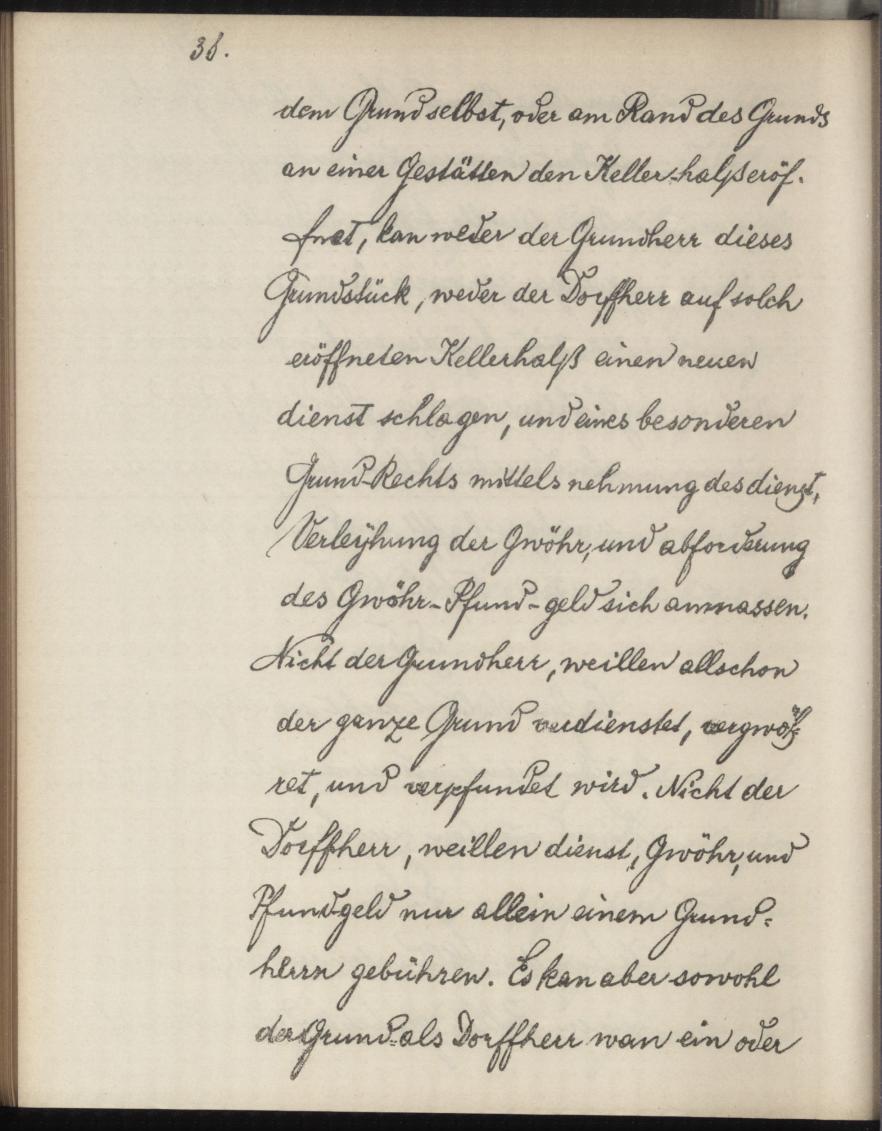 38.
dem Grund selbst, oder am Rand des Grunds
an einer Gestätten den Keller-halß eröf-
fnet, kan weder der Grundherr dieses
Grundstück, weder der Dorffherr auf solch
eröffneten Kellerhalß einen neuen
dienst schlagen, und eines besonderen
Grund-Rechts mittels nehmung des dienst,
Verleÿhung der Gwöhr, und abforderung
des Gwöhr-Pfund-geld sich anmassen.
Nicht der Grundherr, weillen allschon
der ganze Grund verdienstet, vergwöh-
ret, und verpfundet wird. Nicht der
Dorffherr, weillen dienst, Gwöhr, und
Pfundgeld nur allein einem Grund-
herrn gebühren. Es kan aber sowohl
der Grund- als Dorffherr wan ein oder